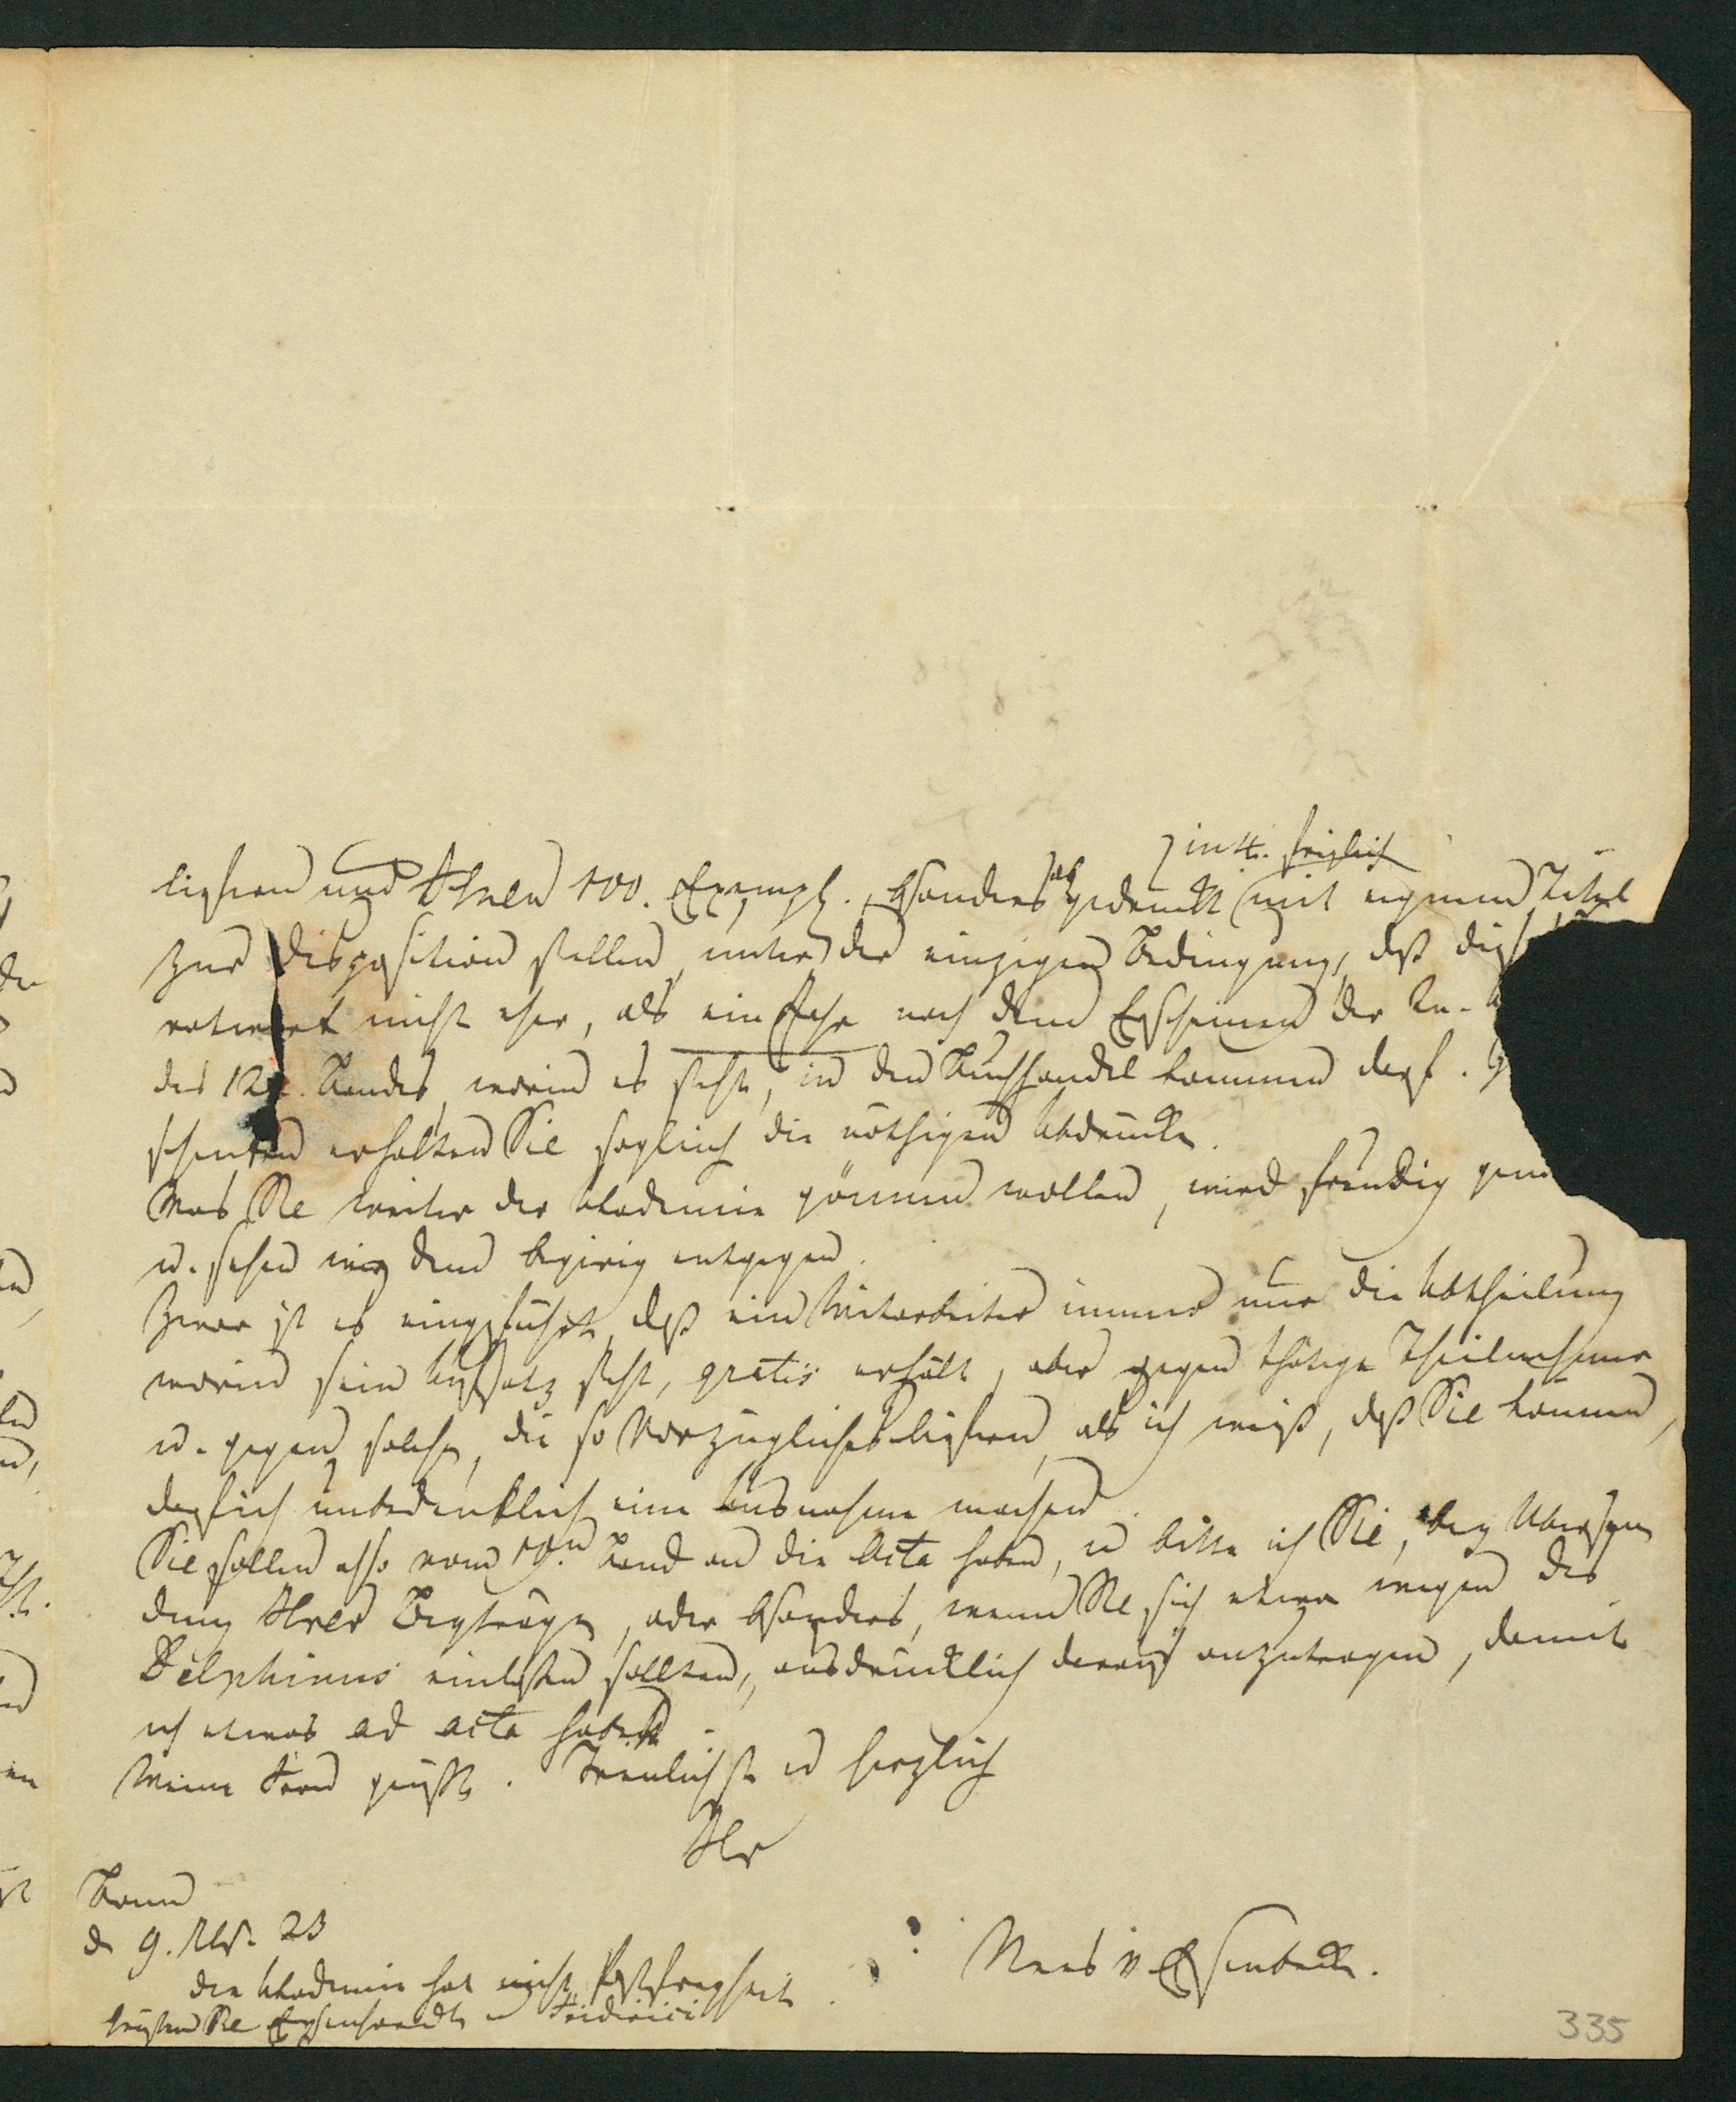 in 4. freylich
liefern und Ihnen 100. Exempl., besonders abgedruckt (mit eignem Titel
zur Disposition stellen, unter der einzigen Bedingung, daß
nicht eher, als ein Jahr nach dem Erscheinen der
des Bandes, worin es steht, in den Buchhandel kommen darf.
erhalten Sie sogleich die nöthigen Abdrücke.
Was Sie weiter der Akademie gönnen wollen, wird freudig
u. sehen wir dem begierig entgegen.
Zwar ist es eingeführt, daß ein Mitarbeiter immer nur die Abtheilung
worin sein Aufsatz steht, gratis erhält, aber gegen thätige Theilnehmer
u. gegen solche, die so Vorzügliches liefern, als ich weiß, daß Sie können,
darf ich unbedenklich eine Ausnahme machen.
Sie sollen also vom 10n. Band an die Acta haben, u bitte ich Sie, bey Übersen
dung Ihrer Beyträge, oder besonders, wenn Sie sich etwa wegen des
Delphinus einlassen sollten, ausdrücklich darauf anzutragen, damit
ich etwas ad acta habe.
Meine Frau grüßt. Treulichst u herzlich
Ihr
Bonn
d 9. 23
Nees v Esenbeck.
die Akademie hat nicht Postfreyheit.
Grüßen Sie Eysenhardt u
335